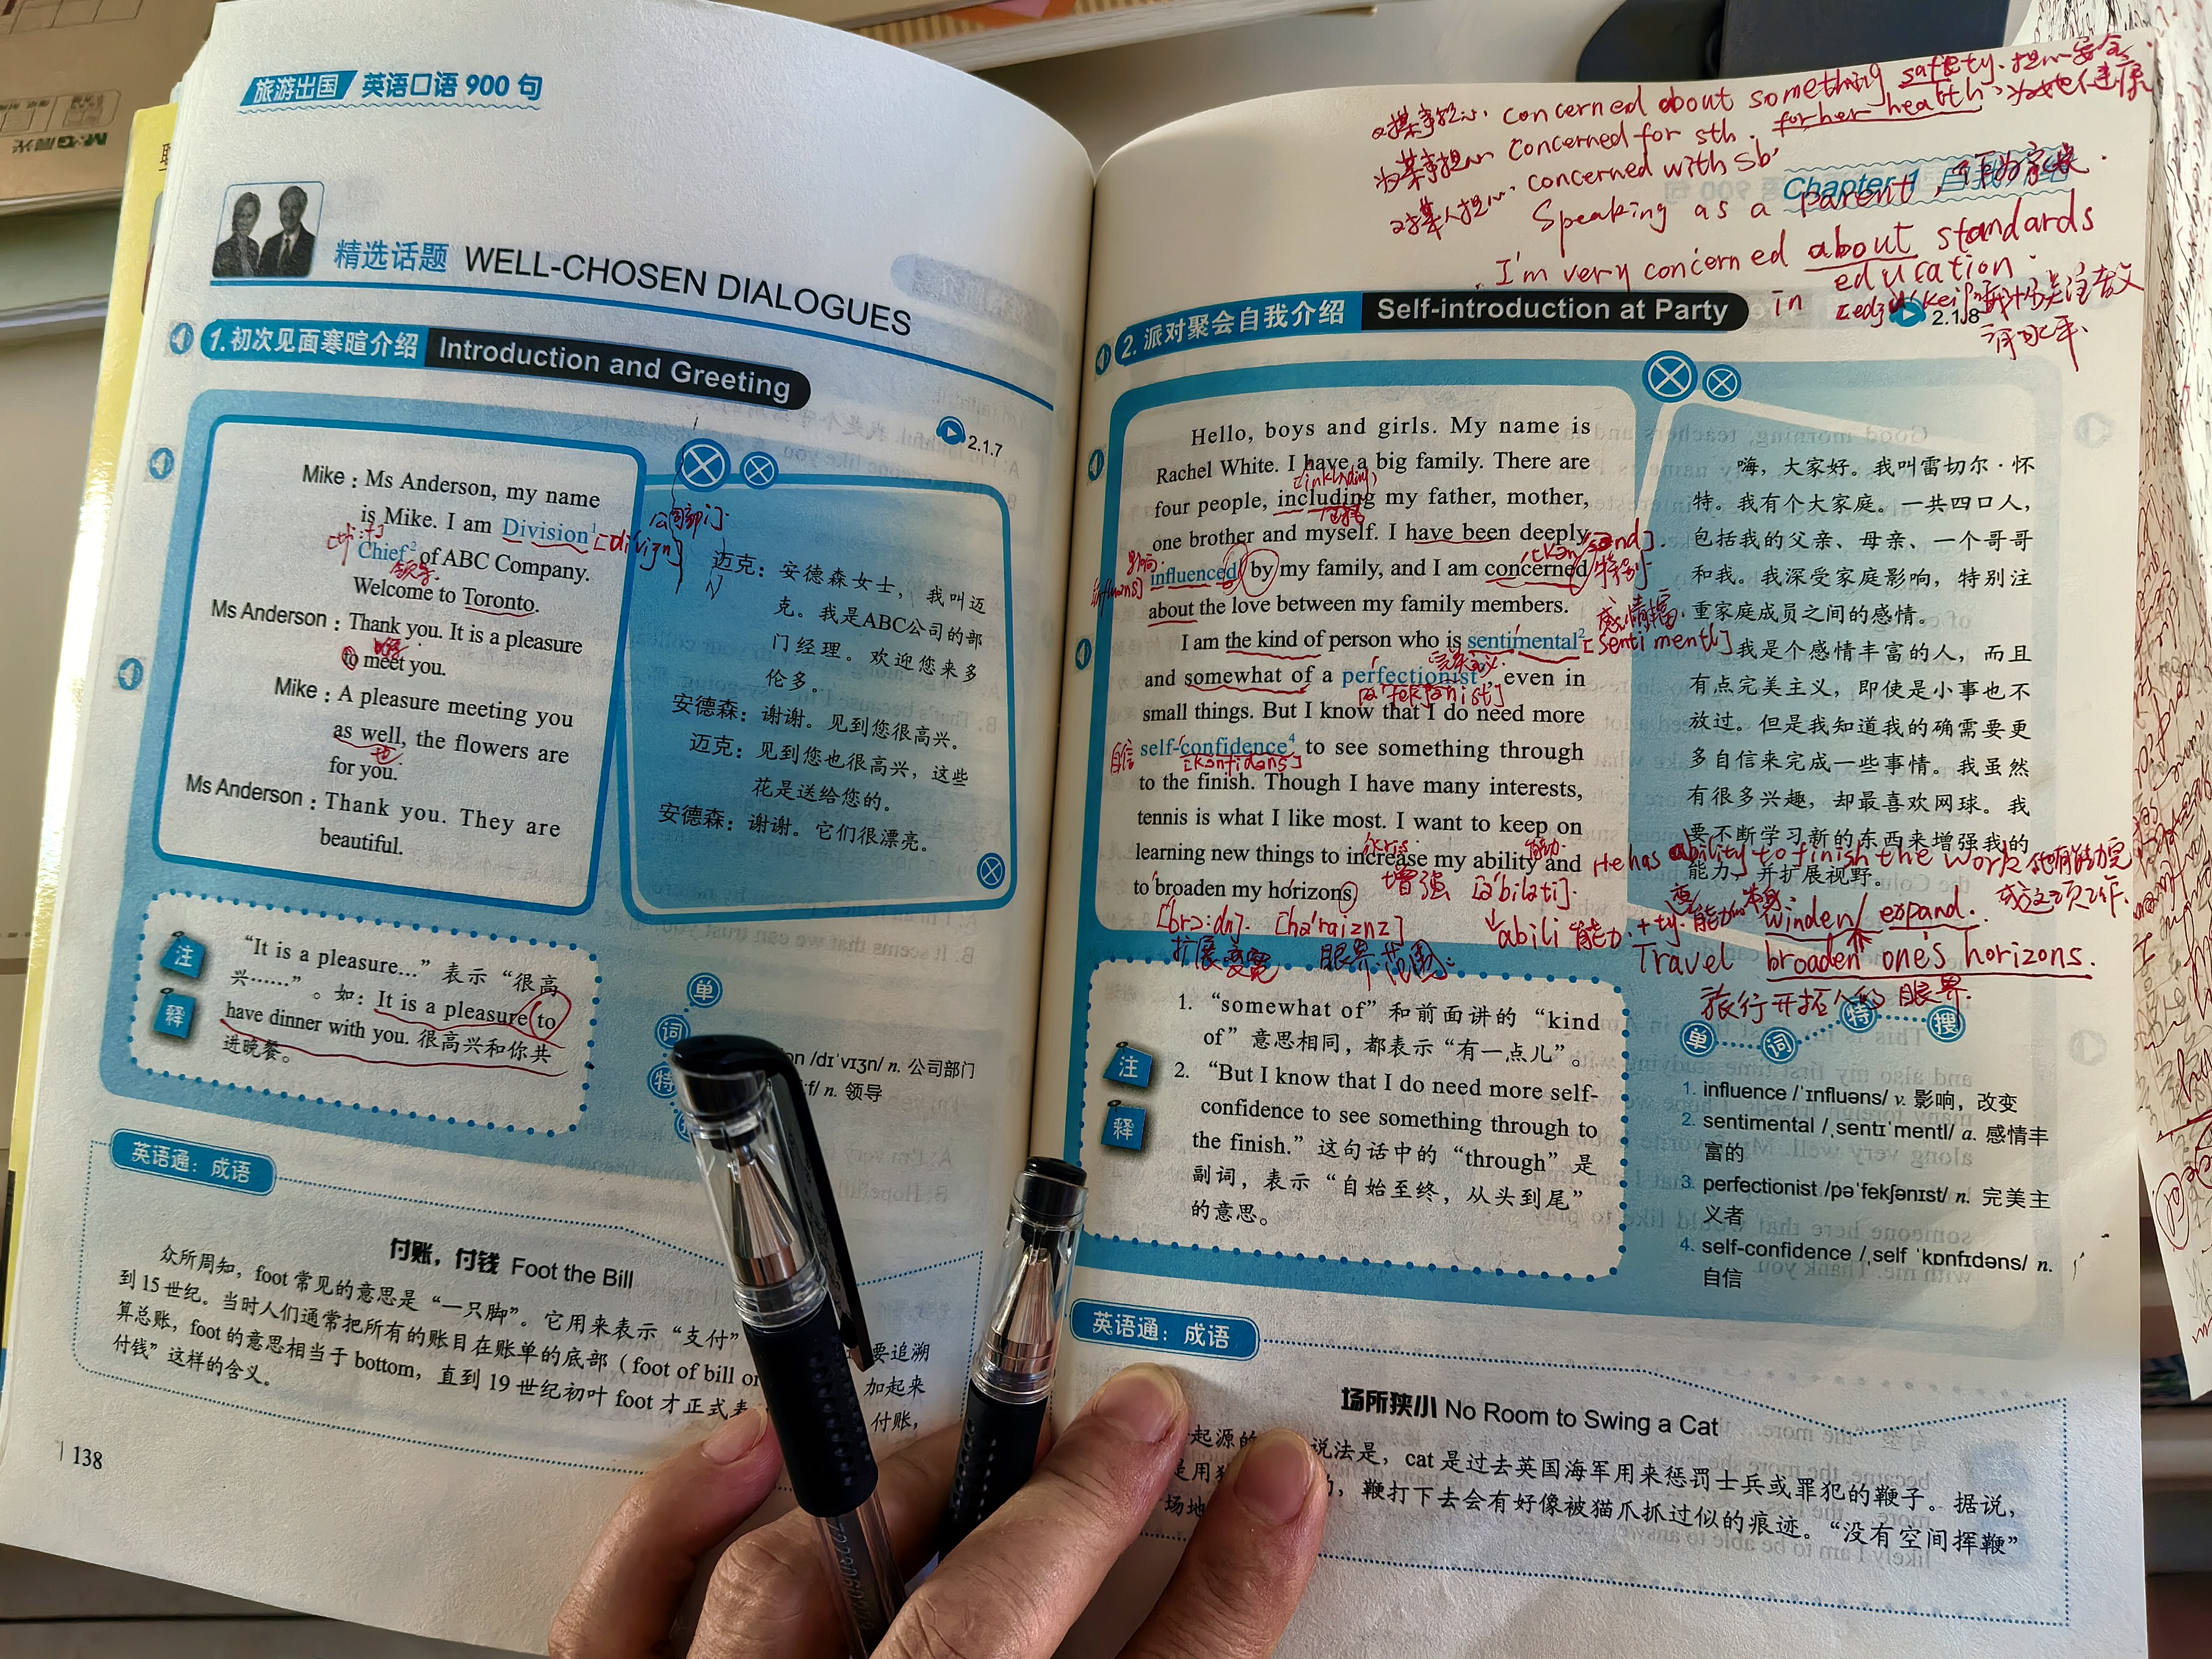 旅游出国 英语口语 900 句
精选话题 WELL-CHOSEN DIALOGUES
1.初次见面寒暄介绍 Introduction and Greeting
2.1.7
Mike : Ms Anderson, my name
is Mike. I am Division¹
公司部门
Chief² of ABC Company.
领导
Welcome to Toronto.
Ms Anderson : Thank you. It is a pleasure
to meet you.
Mike : A pleasure meeting you
as well, the flowers are
也
for you.
Ms Anderson : Thank you. They are
beautiful.
迈克：安德森女士，我叫迈
克。我是ABC公司的部
门经理。欢迎您来多
伦多。
安德森：谢谢。见到您很高兴。
迈克：见到您也很高兴，这些
花是送给您的。
安德森：谢谢。它们很漂亮。
注释
“It is a pleasure...” 表示 “很高
兴……” 。如：It is a pleasure to
have dinner with you. 很高兴和你共
进晚餐。
单
词
特
on /dɪˈvɪʒn/ n. 公司部门
f/ n. 领导
英语通：成语
付账，付钱 Foot the Bill
众所周知，foot 常见的意思是 “一只脚”。它用来表示 “支付”
要追溯
到 15 世纪。当时人们通常把所有的账目在账单的底部（foot of bill or
加起来
算总账，foot 的意思相当于 bottom，直到 19 世纪初叶 foot 才正式
付账，
付钱” 这样的含义。
138
对某事担心. concerned about something safety. 担心安全
为某事担心 concerned for sth. for her health
对某人担心. concerned with sb'
Chapter 1
Speaking as a parent, 作为家长.
I'm very concerned about standards
in education.
2.1.8
2. 派对聚会自我介绍 Self-introduction at Party
Hello, boys and girls. My name is
Rachel White. I have a big family. There are
four people, including my father, mother,
包括
one brother and myself. I have been deeply
影响
influenced by my family, and I am concerned
特别
about the love between my family members.
I am the kind of person who is sentimental²
感情丰富.
[senti'mentl]
完美主义
and somewhat of a perfectionist³ even in
small things. But I know that I do need more
自信 self-confidence⁴ to see something through
to the finish. Though I have many interests,
tennis is what I like most. I want to keep on
learning new things to increase my ability and
增强 [ə'biləti].
to broaden my horizons.
[brɔ:dn]. [hə'raiznz]
扩展 变宽 眼界 范围
嗨，大家好。我叫雷切尔·怀
特。我有个大家庭。一共四口人，
包括我的父亲、母亲、一个哥哥
和我。我深受家庭影响，特别注
重家庭成员之间的感情。
我是个感情丰富的人，而且
有点完美主义，即使是小事也不
放过。但是我知道我的确需要更
多自信来完成一些事情。我虽然
有很多兴趣，却最喜欢网球。我
要不断学习新的东西来增强我的
能力，并扩展视野。
He has ability to finish the work 他有能力完
成这项工作.
abili 能力. + ty.
winden/ expand.
Travel broaden one's horizons.
旅行开拓人的眼界.
注释
1. “somewhat of” 和前面讲的 “kind
of” 意思相同，都表示 “有一点儿”。
2. “But I know that I do need more self-
confidence to see something through to
the finish.” 这句话中的 “through” 是
副词，表示 “自始至终，从头到尾”
的意思。
单词特搜
1. influence /ˈɪnfluəns/ v. 影响，改变
2. sentimental /ˌsentɪˈmentl/ a. 感情丰
富的
3. perfectionist /pəˈfekʃənɪst/ n. 完美主
义者
4. self-confidence /ˌself ˈkɒnfɪdəns/ n.
自信
英语通：成语
场所狭小 No Room to Swing a Cat
起源的
说法是，cat 是过去英国海军用来惩罚士兵或罪犯的鞭子。据说，
是用
，鞭打下去会有好像被猫爪抓过似的痕迹。“没有空间挥鞭”
场地